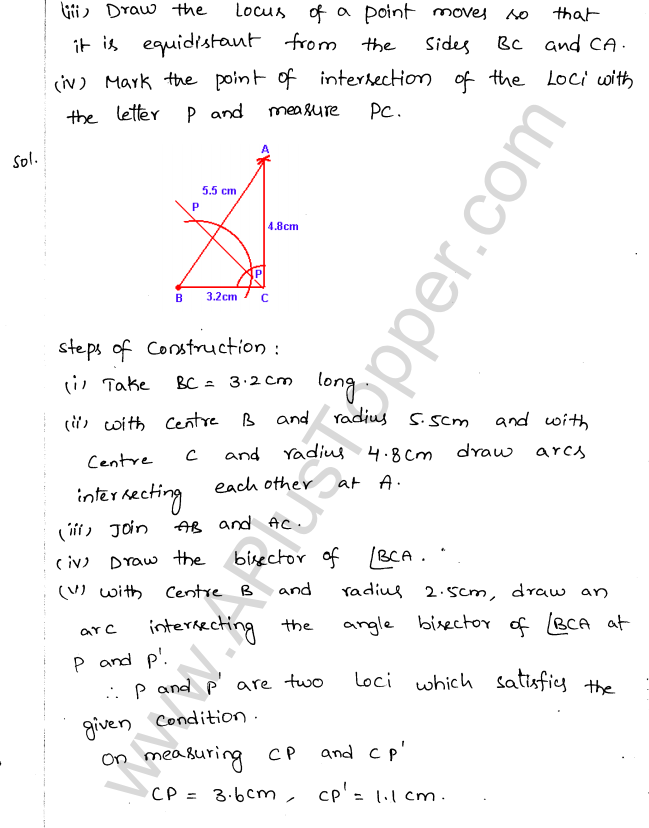 (iii) Draw the Locus of a point moves so that
it is equidistant from the sides BC and CA.
(iv) Mark the point of intersection of the Loci with
the letter P and measure PC.
Sol.
A
5.5 cm
P
4.8cm
P
B
3.2cm
C
Steps of Construction :
(i) Take BC = 3.2cm long.
(ii) with centre B and radius 5.5cm and with
Centre C and radius 4.8cm draw arcs
intersecting each other at A.
(iii) Join AB and AC.
(iv) Draw the bisector of ∠BCA.
(v) with Centre B and radius 2.5cm, draw an
arc intersecting the angle bisector of ∠BCA at
P and P'.
∴ P and P' are two Loci which satisfies the
given condition.
On measuring CP and CP'
CP = 3.6cm, CP' = 1.1cm.
www.APlusTopper.com